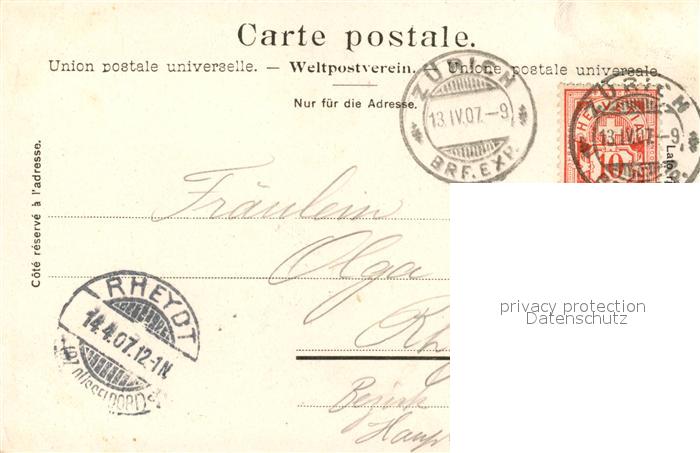 Carte postale.
Union postale universelle. — Weltpostverein. — Unione postale universale.
Nur für die Adresse.
Côté réservé à l'adresse.
ZÜRICH
13.IV.07.–9
BRF. EXP.
ZÜRICH
13.IV.07.–9
HELVETIA
10
Fräulein
Olga
Rh
RHEYDT
14.4.07.12-1N.
Bezirk
Haup
privacy protection
Datenschutz